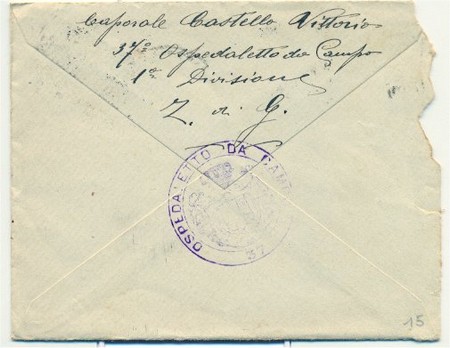 Caporale Castello Vittorio
37º Ospedaletto da Campo
1ª Divisione
Z. di G.
OSPEDALETTO DA CAM
37
15